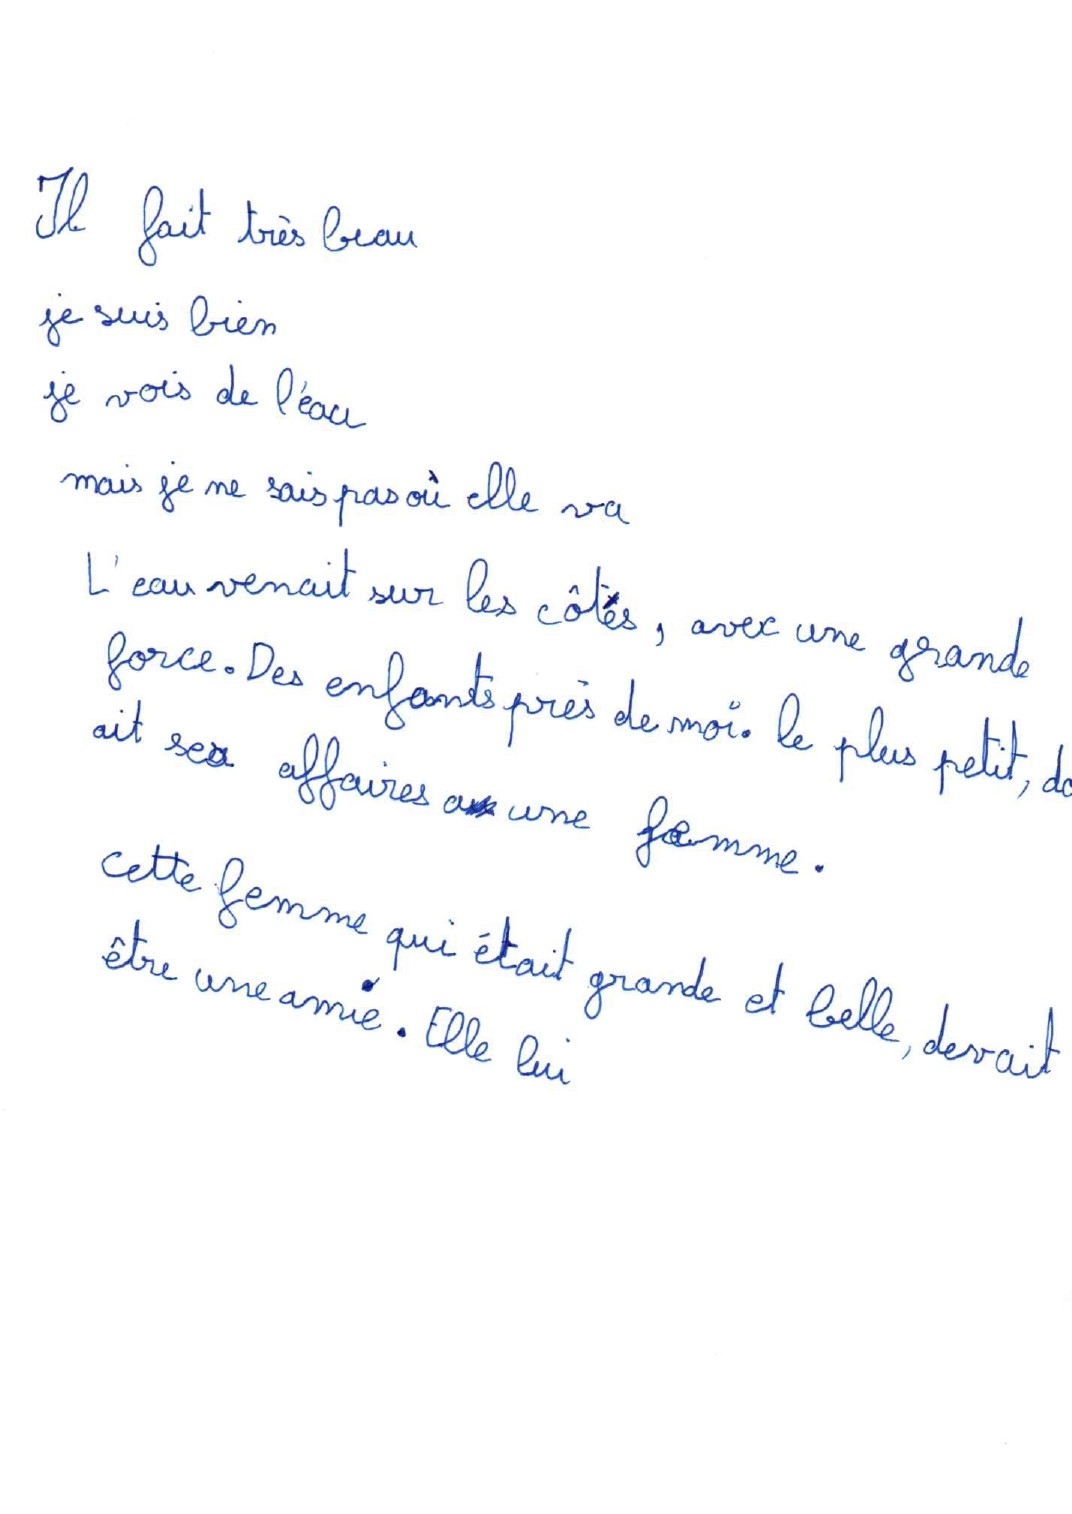 Il fait très beau
je suis bien
je vois de l'éau
mais je ne sais pas où elle va
L'eau venait sur les côtés, avec une grande
force. Des enfants près de moi. le plus petit, do
ait ses affaires a une femme.
cette femme qui était grande et belle, devait
être une amie. Elle lui